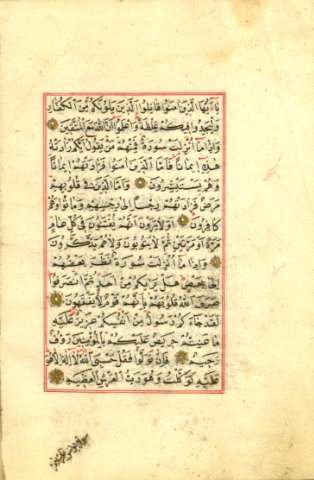 يَا أَيُّهَا الَّذِينَ آمَنُوا قَاتِلُوا الَّذِينَ يَلُونَكُمْ مِنَ الْكُفَّارِ
وَلْيَجِدُوا فِيكُمْ غِلْظَةً وَاعْلَمُوا أَنَّ اللَّهَ مَعَ الْمُتَّقِينَ
وَإِذَا مَا أُنْزِلَتْ سُورَةٌ فَمِنْهُمْ مَنْ يَقُولُ أَيُّكُمْ زَادَتْهُ
هَذِهِ إِيمَانًا فَأَمَّا الَّذِينَ آمَنُوا فَزَادَتْهُمْ إِيمَانًا
وَهُمْ يَسْتَبْشِرُونَ وَأَمَّا الَّذِينَ فِي قُلُوبِهِمْ
مَرَضٌ فَزَادَتْهُمْ رِجْسًا إِلَى رِجْسِهِمْ وَمَاتُوا وَهُمْ
كَافِرُونَ أَوَلَا يَرَوْنَ أَنَّهُمْ يُفْتَنُونَ فِي كُلِّ عَامٍ
مَرَّةً أَوْ مَرَّتَيْنِ ثُمَّ لَا يَتُوبُونَ وَلَا هُمْ يَذَّكَّرُونَ
وَإِذَا مَا أُنْزِلَتْ سُورَةٌ نَظَرَ بَعْضُهُمْ
إِلَى بَعْضٍ هَلْ يَرَاكُمْ مِنْ أَحَدٍ ثُمَّ انْصَرَفُوا
صَرَفَ اللَّهُ قُلُوبَهُمْ بِأَنَّهُمْ قَوْمٌ لَا يَفْقَهُونَ
لَقَدْ جَاءَكُمْ رَسُولٌ مِنْ أَنْفُسِكُمْ عَزِيزٌ عَلَيْهِ
مَا عَنِتُّمْ حَرِيصٌ عَلَيْكُمْ بِالْمُؤْمِنِينَ رَءُوفٌ
رَحِيمٌ فَإِنْ تَوَلَّوْا فَقُلْ حَسْبِيَ اللَّهُ لَا إِلَهَ إِلَّا هُوَ
عَلَيْهِ تَوَكَّلْتُ وَهُوَ رَبُّ الْعَرْشِ الْعَظِيمِ